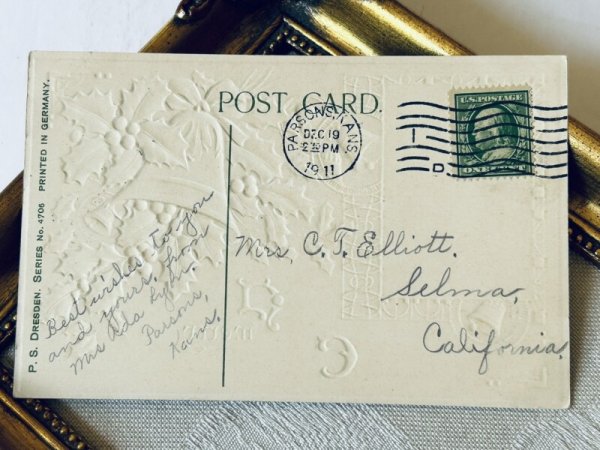 POST CARD.
PARSONS, KANS.
DEC 19
2 30 PM
1911
1
D
U.S. POSTAGE
ONE CENT
P. S. DRESDEN. SERIES No. 4706 PRINTED IN GERMANY.
Best wishes to you
and yours, from
Mrs Ada
Parsons,
Kans.
Mrs, C. T. Elliott.
Selma,
California.